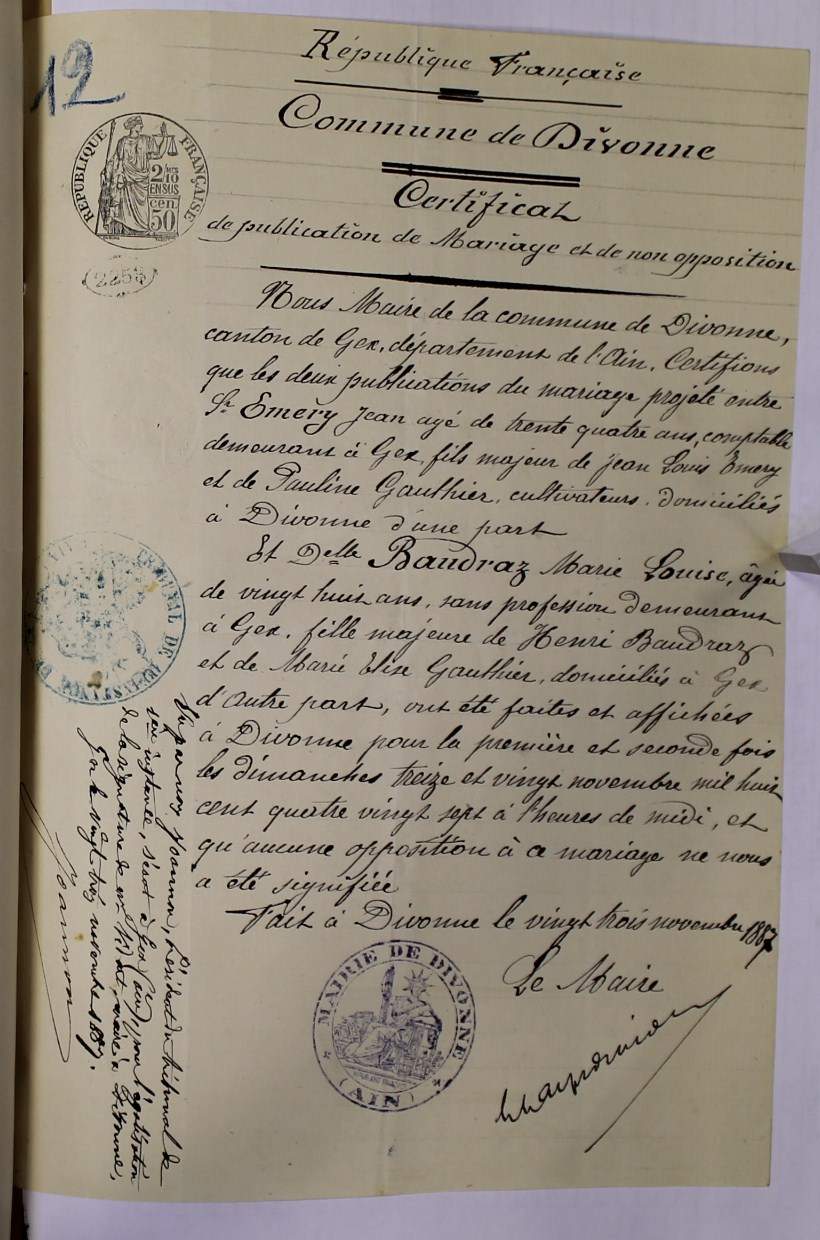 12
République Française
Commune de Divonne
Certificat
de publication de Mariage et de non opposition
RÉPUBLIQUE FRANÇAISE
2/10
EN SUS
cen.
50
Nous Maire de la commune de Divonne,
canton de Gex, département de l'Ain, Certifions
que les deux publications du mariage projeté entre
Sr Emery Jean agé de trente quatre ans, comptable
demeurant à Gex, fils majeur de Jean Louis Emery
et de Pauline Gauthier, cultivateurs, domiciliés
à Divonne d'une part
Et Delle Baudraz Marie Louise, âgée
de vingt huit ans, sans profession demeurant
à Gex, fille majeure de Henri Baudraz
et de Marie Elise Gauthier, domiciliés à Gex
d'autre part, ont été faites et affichées
à Divonne pour la première et seconde fois
les dimanches treize et vingt novembre mil huit
cent quatre vingt sept à l'heures de midi, et
qu'aucune opposition à ce mariage ne nous
a été signifiée
Fait à Divonne le vingt trois novembre 1887
Le Maire
MAIRIE DE DIVONNE
(AIN)
TRIBUNAL DE
Vu par nous Joannon, Président du tribunal de
1ère instance, séant à Gex (Ain), pour légalisation
de la signature de Mr maire à Divonne,
Gex le vingt trois novembre 1887.
Joannon